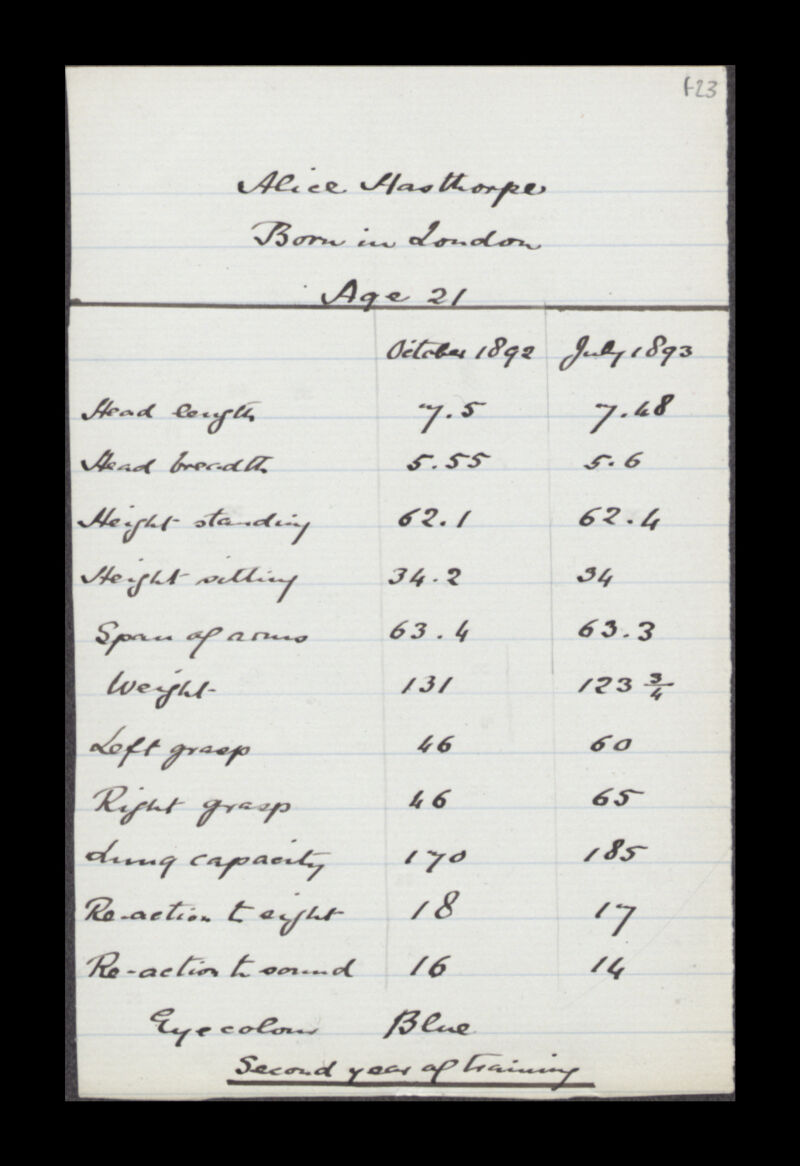 f23
Alice Hasthorpe
Born in London
Age 21
October 1892 July 1893
Head length 7.5 7.48
Head breadth 5.55 5.6
Height standing 62.1 62.4
Height sitting 34.2 34
Span of arms 63.4 63.3
Weight 131 123 3/4
Left grasp 46 60
Right grasp 46 65
Lung capacity 170 185
Re-action to sight 18 17
Re-action to sound 16 14
Eye colour Blue
Second year of training